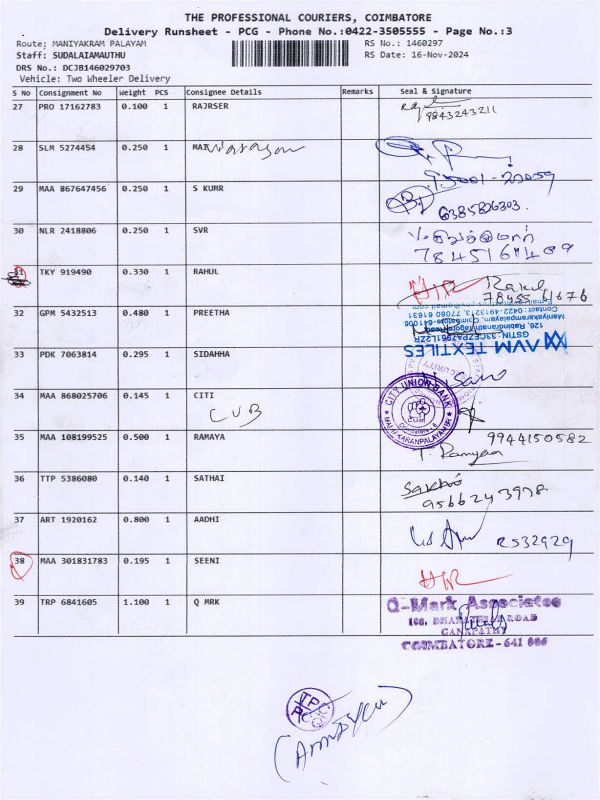 THE PROFESSIONAL COURIERS, COIMBATORE
Delivery Runsheet - PCG - Phone No.:0422-3505555 - Page No.:3
Route; MANIYAKRAM PALAYAM RS No.: 1460297
Staff: SUDALAIAMAUTHU RS Date: 16-Nov-2024
DRS No.: DCJB146029703
Vehicle: Two Wheeler Delivery
S No Consignment No Weight PCS Consignee Details Remarks Seal & Signature
27 PRO 17162783 0.100 1 RAJRSER
9843243211
28 SLM 5274454 0.250 1
29 MAA 867647456 0.250 1 S KUMR
6385826303
30 NLR 2418806 0.250 1 SVR
31 TKY 919490 0.330 1 RAHUL H/R Rahul
32 GPM 5432513 0.480 1 PREETHA
126, Rabindranath Tagore
GSTIN: 33CEZPA7961L2ZR
AVM TEXTILES
33 PDK 7063814 0.295 1 SIDAHHA
SECURITY
34 MAA 868025706 0.145 1 CITI
CUB
CITY UNION BANK
35 MAA 108199525 0.500 1 RAMAYA 9944150582
T. Ramyaa
36 TTP 5386080 0.140 1 SATHAI
9566243978
37 ART 1920162 0.800 1 AADHI
R532929
38 MAA 301831783 0.195 1 SEENI H/R
39 TRP 6841605 1.100 1 Q MRK Q-Mark Associates
GANAPATHY
COIMBATORE - 641 006